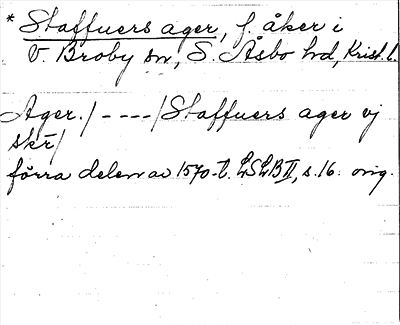 * Staffuers ager, f. åker i
V. Broby sn, S. Åsbo hd, Krist. l.
Ager. / - - - - / Staffuers ager vj
skr /
förra delen av 1570-t. LSLB II, s. 16. orig.